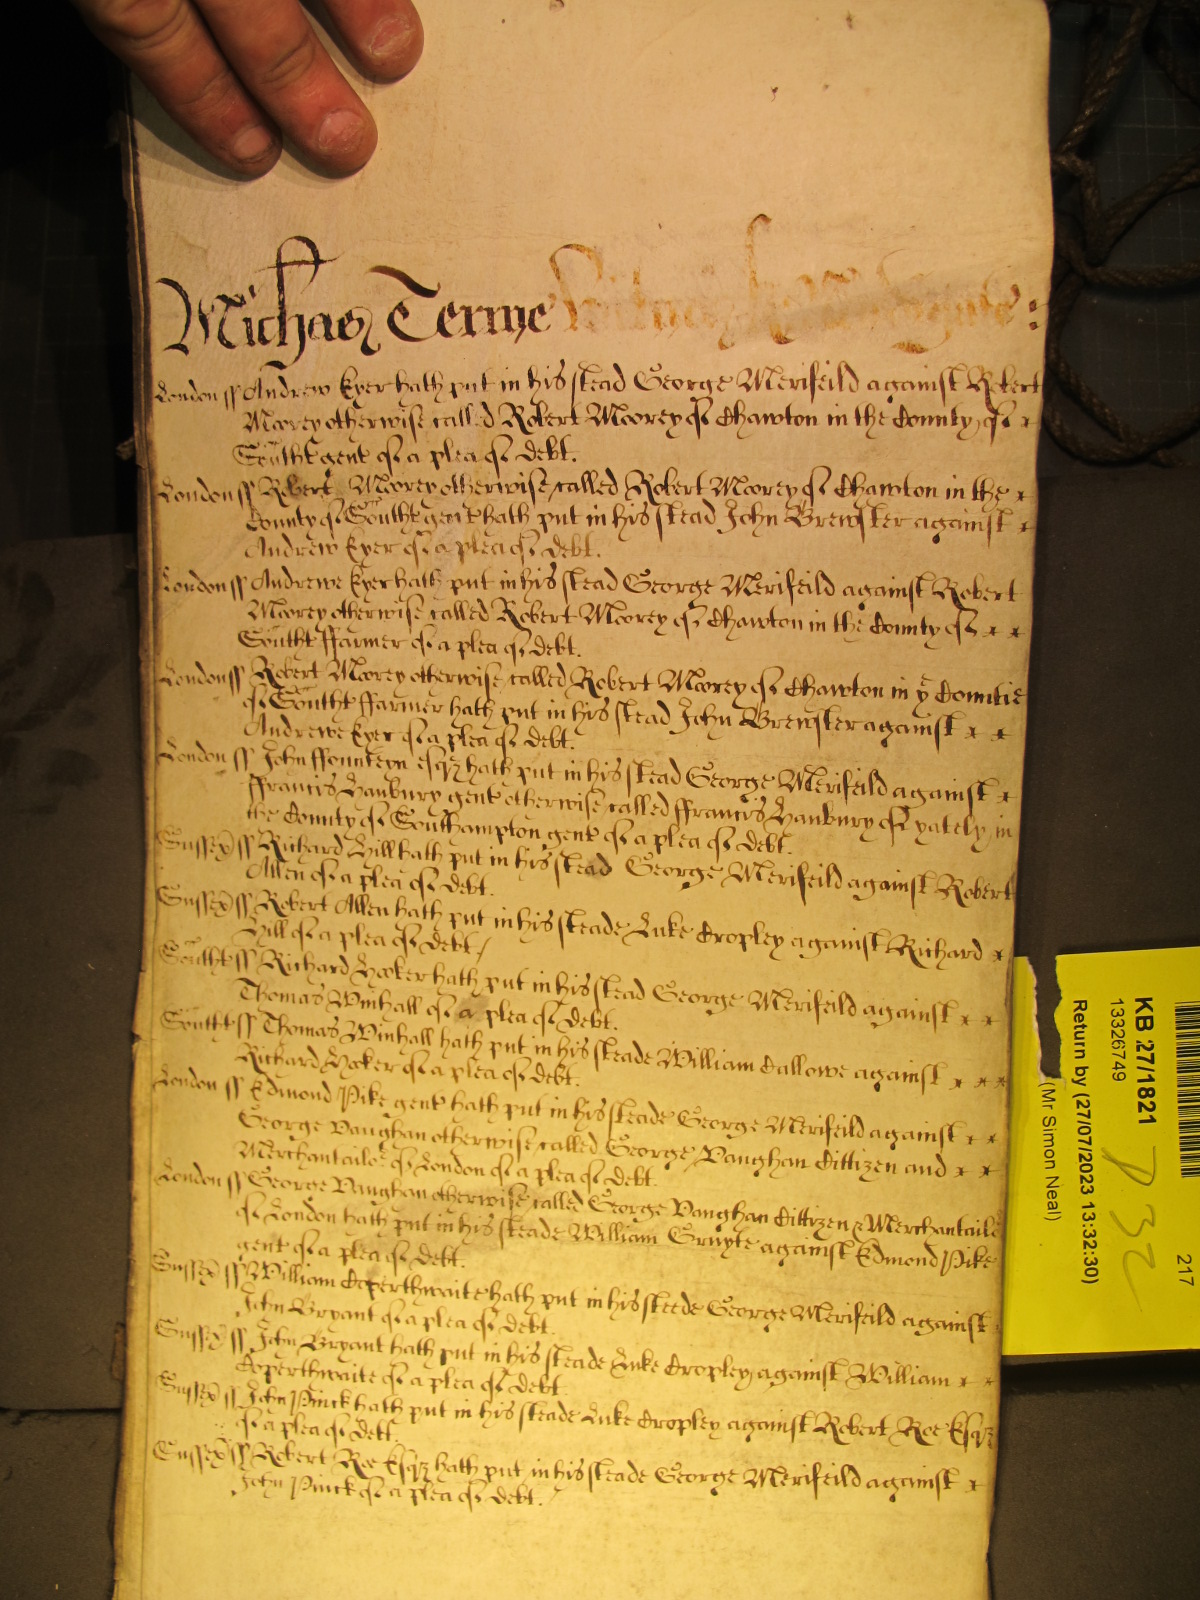 Michaes Terme
London ss Andrew Eyer hath put in his stead George Merifeild against Robert
Moorey otherwise called Robert Moorey of Chawton in the County of
Southt gent of a plea of debt.
London ss Robert Moorey otherwise called Robert Moorey of Chawton in the
County of Southt gent hath put in his stead John Brewster against
Andrew Eyer of a plea of debt.
London ss Andrewe Eyer hath put in his stead George Merifeild against Robert
Moorey otherwise called Robert Moorey of Chawton in the County of
Southt ffarmer of a plea of debt.
London ss Robert Moorey otherwise called Robert Moorey of Chawton in ye Countie
of Southt ffarmer hath put in his stead John Brewster against
Andrewe Eyer of a plea of debt.
London ss John ffounteyn esqz hath put in his stead George Merifeild against
ffrancis Hanbury gent otherwise called ffrancis Hanbury of yately in
the County of Southampton gent of a plea of debt.
Sussex ss Richard Hill hath put in his stead George Merifeild against Robert
Allen of a plea of debt.
Sussex ss Robert Allen hath put in his steade Luke Cropley against Richard
Hill of a plea of debt /
Southt ss Richard Hooker hath put in his stead George Merifeild against
Thomas Winhall of a plea of debt.
Southt ss Thomas Winhall hath put in his steade William Callowe against
Richard Hooker of a plea of debt.
London ss Edmond Pike gent hath put in his steade George Merifeild against
George Vaughan otherwise called George Vaughan Cittizen and
Merchantailor of London of a plea of debt.
London ss George Vaughan otherwise called George Vaughan Cittizen & Merchantailor
of London hath put in his steade William Gruyte against Edmond Pike
gent of a plea of debt.
Sussex ss William Coperthwaite hath put in his steede George Merifeild against
John Bryant of a plea of debt.
Sussex ss John Bryant hath put in his steade Luke Cropley against William
Coperthwaite of a plea of debt
Sussex ss John Pinck hath put in his steade Luke Cropley against Robert Roe Esqz
of a plea of debt.
Sussex ss Robert Roe Esqz hath put in his steade George Merifeild against
John Pinck of a plea of debt. /
217
KB 27/1821 D32
13326749
Return by (27/07/2023 13:32:30)
(Mr Simon Neal)